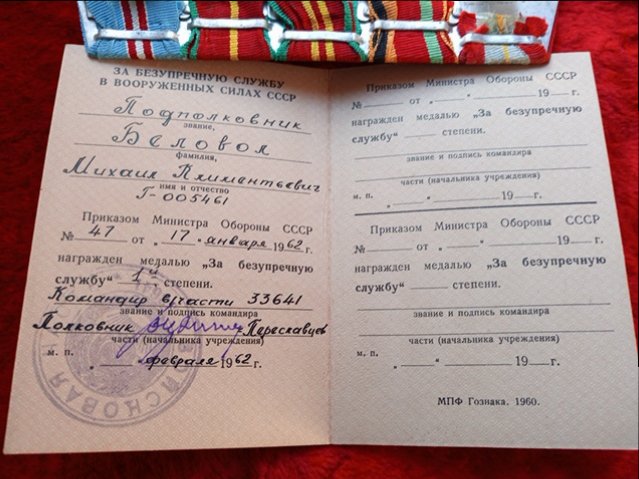 ЗА БЕЗУПРЕЧНУЮ СЛУЖБУ
В ВООРУЖЕННЫХ СИЛАХ СССР
Подполковник
звание,
Беловол
фамилия,
Михаил Климентьевич
имя и отчество
Г-005461
Приказом Министра Обороны СССР
№ 47 от „ 17 “ января 1962 г.
награжден медалью „За безупречную
службу“ 1й степени.
Командир в/части 33641
звание и подпись командира
Полковник Переславцев
части (начальника учреждения)
м. п. „ “ февраля 1962 г.
ВОЙСКОВАЯ
Приказом Министра Обороны СССР
№ от „ “ 19 г.
награжден медалью „За безупречную
службу“ степени.
звание и подпись командира
части (начальника учреждения)
м. п. „ “ 19 г.
Приказом Министра Обороны СССР
№ от „ “ 19 г.
награжден медалью „За безупречную
службу“ степени.
звание и подпись командира
части (начальника учреждения)
м. п. „ “ 19 г.
МПФ Гознака. 1960.